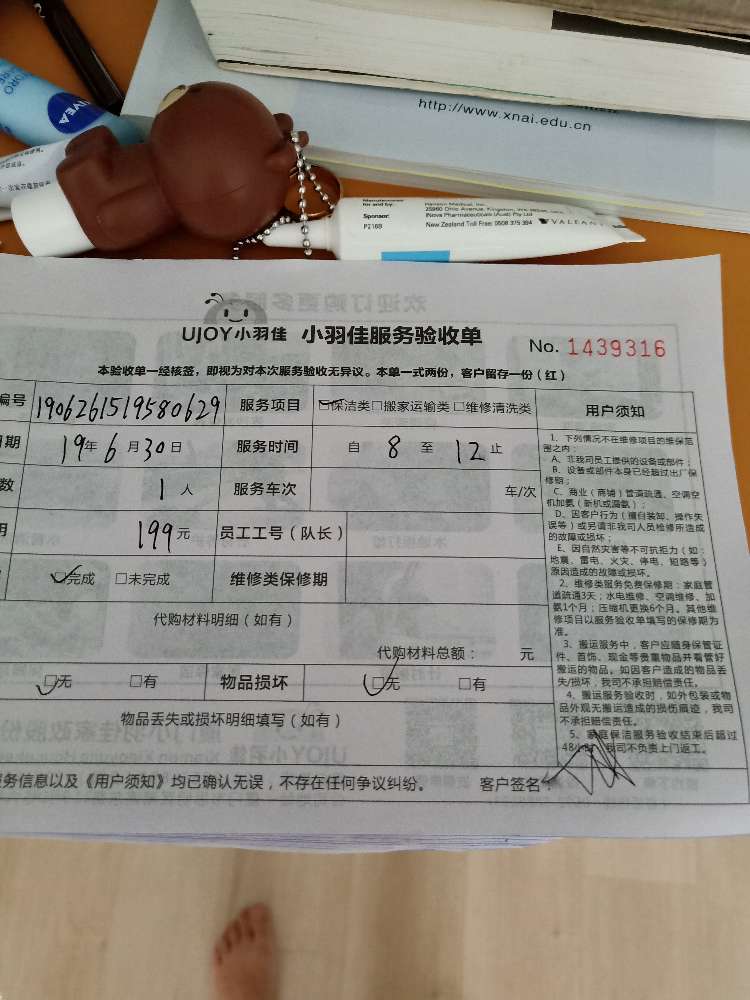 NIVEA
http://www.xnai.edu.cn
Manufactured
for and by:
Sponsor:
iNova Pharmaceuticals (Aust) Pty Ltd
P2168
New Zealand Toll Free: 0508 375 394
VALEANT
UJOY小羽佳 小羽佳服务验收单
No. 1439316
本验收单一经核签，即视为对本次服务验收无异议。本单一式两份，客户留存一份（红）
编号 1906261519580629 服务项目 ☑保洁类□搬家运输类□维修清洗类
日期 19年 6 月 30 日 服务时间 自 8 至 12 止
数 1 人 服务车次 车/次
199 元 员工工号（队长）
☑完成 □未完成 维修类保修期
代购材料明细（如有）
代购材料总额： 元
☑无 □有 物品损坏 ☑无 □有
物品丢失或损坏明细填写（如有）
服务信息以及《用户须知》均已确认无误，不存在任何争议纠纷。 客户签名：
用户须知
1、下列情况不在维修项目的维保范
围之内：
A、非我司员工提供的设备或部件；
B、设备或部件本身已经超过出厂保
修期；
C、商业（商铺）管道疏通、空调空
机加氨（新机或漏氨）；
D、因客户行为（擅自装卸、操作失
误等）或另请非我司人员检修所造成
的故障或损坏；
E、因自然灾害等不可抗拒力（如：
地震、雷电、火灾、停电、短路等）
原因造成的故障或损坏。
2、维修类服务免费保修期：家庭管
道疏通3天；水电维修、空调维修、加
氨1个月；压缩机更换6个月。其他维
修项目以服务验收单填写的保修期为
准。
3、搬运服务中，客户应随身保管证
件、首饰、现金等贵重物品并看管好
搬运的物品。如因客户造成的物品丢
失/损坏，我司不承担赔偿责任。
4、搬运服务验收时，如外包装或物
品外观无搬运造成的损伤痕迹，我司
不承担赔偿责任。
5、家庭保洁服务验收结束后超过
48小时，我司不负责上门返工。